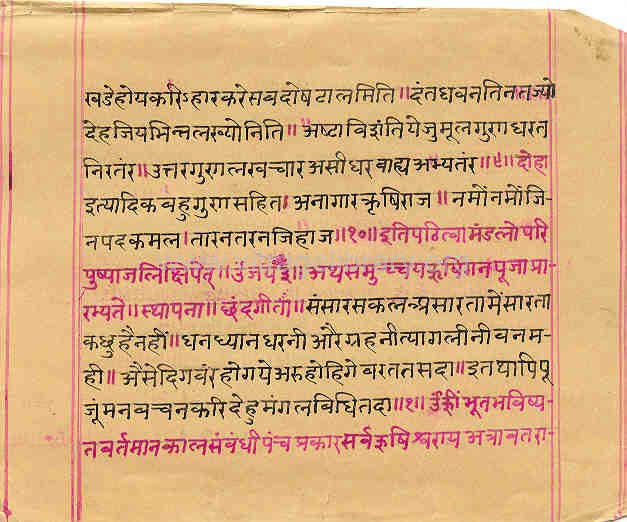 खडेहोयकरिऽहारकरेसवदोषटालमिति॥दंतधवनतिनतज्यो
देहजियभिन्नलख्योनिति॥अष्टाविशंतियेजुमूलगुराधरत
निरतंर॥उत्तरगुरालखच्चारअसीधरवाह्यअभ्यतंर॥९॥दोहा
इत्यादिकवहुगुरासहित।अनागारऋषिराज॥नमोंनमोंजि-
नपदकमल।तारनतरनजिहाज॥१०॥इतिपठित्वामंडलोपरि
पुष्पाजलिंक्षिपेत्॥अथसमुच्चयऋषिगनपूजाप्रा-
रम्यते॥स्थापना॥छंदगीता॥संसारसकलअसारतामेंसारता
कछुहैनहीं॥धनध्यानधरनीऔरग्रहनीत्यागलीनीवनम-
ही॥अैसेदिगवंरहोगयेअरुहोहिगेवरततसदा॥इतथापिपू
जूंमनवच्चनकरिदेहुमंगलविधितदा॥१॥भूतभविष्य-
तवर्तमानकालसंबंधीपंचप्रकारसर्वऋषिश्वरायअत्रावतरा-